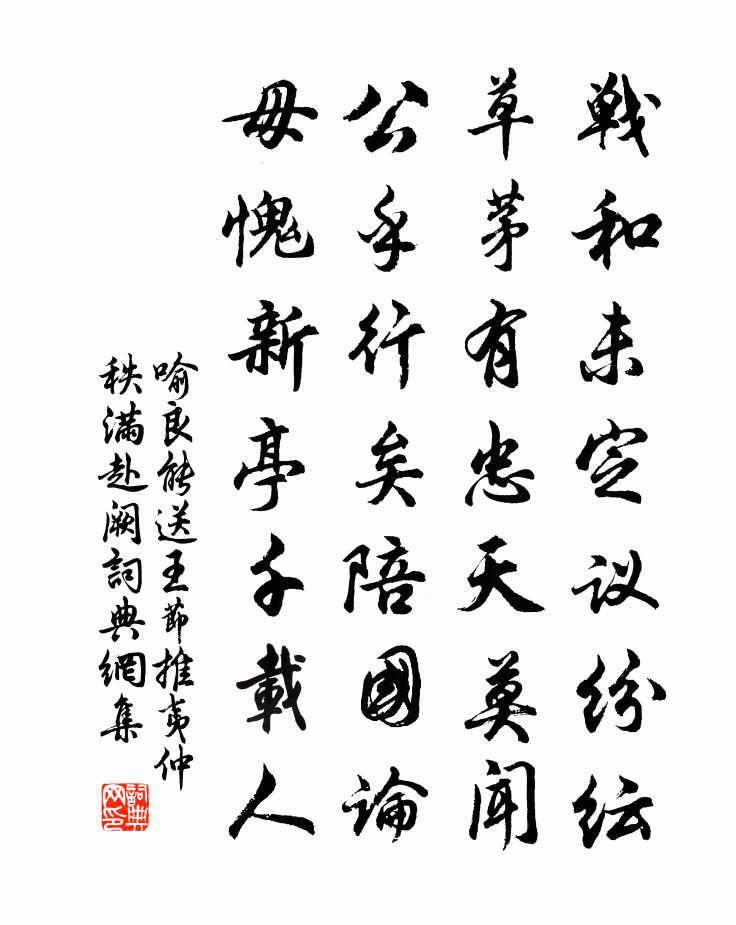 戦和未定议纷纭
草茅有忠天莫闻
公乎行矣陪國論
毋愧新亭千載人
喻良能送王節推夷仲
秩满赴阙詞典網集
詞典网印